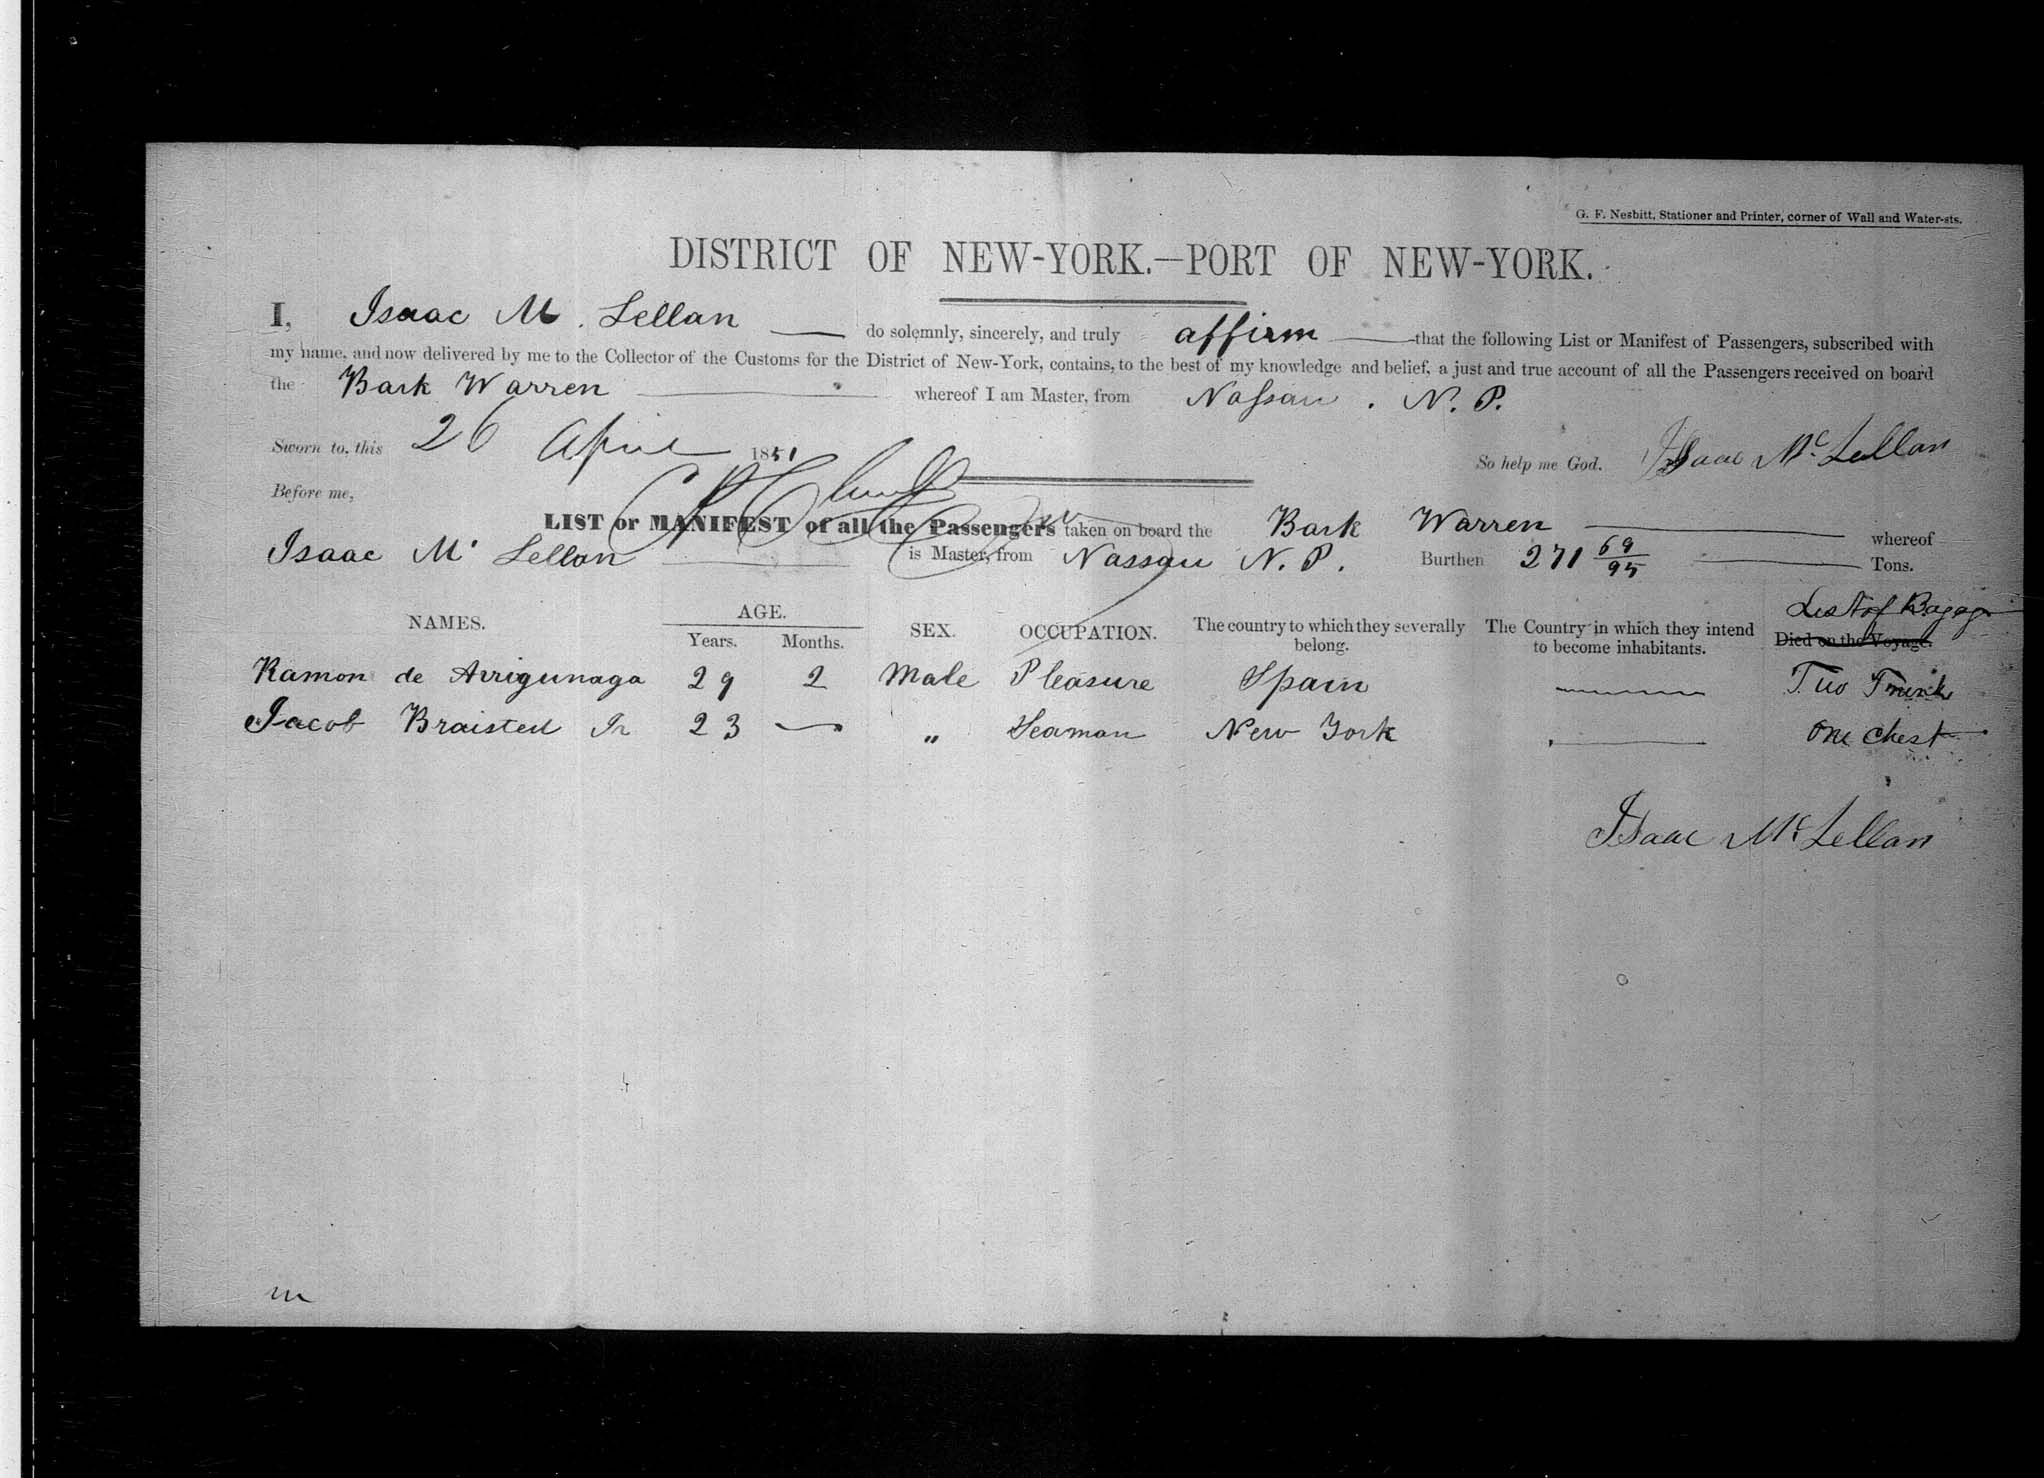 G. F. Nesbitt, Stationer and Printer, corner of Wall and Water-sts.
DISTRICT OF NEW-YORK.—PORT OF NEW-YORK.
I, Isaac M. Lellan — do solemnly, sincerely, and truly affirm — that the following List or Manifest of Passengers, subscribed with
my name, and now delivered by me to the Collector of the Customs for the District of New-York, contains, to the best of my knowledge and belief, a just and true account of all the Passengers received on board
the Bark Warren — whereof I am Master, from Nassau. N. P.
Sworn to, this 26 April 1851 So help me God. Isaac Mc Lellan
Before me,
LIST or MANIFEST of all the Passengers taken on board the Bark Warren — whereof
Isaac M' Lellan — is Master, from Nassau N. P. Burthen 271 69/95 — Tons.
NAMES. AGE. Years. Months. SEX. OCCUPATION. The country to which they severally belong. The Country in which they intend to become inhabitants. Died on the Voyage. List of Bagage
Ramon de Arrigunaga 29 2 Male Pleasure Spain — Two Trunk
Jacob Braisted Jr 23 — " Seaman New York — One Chest
Isaac Mc Lellan